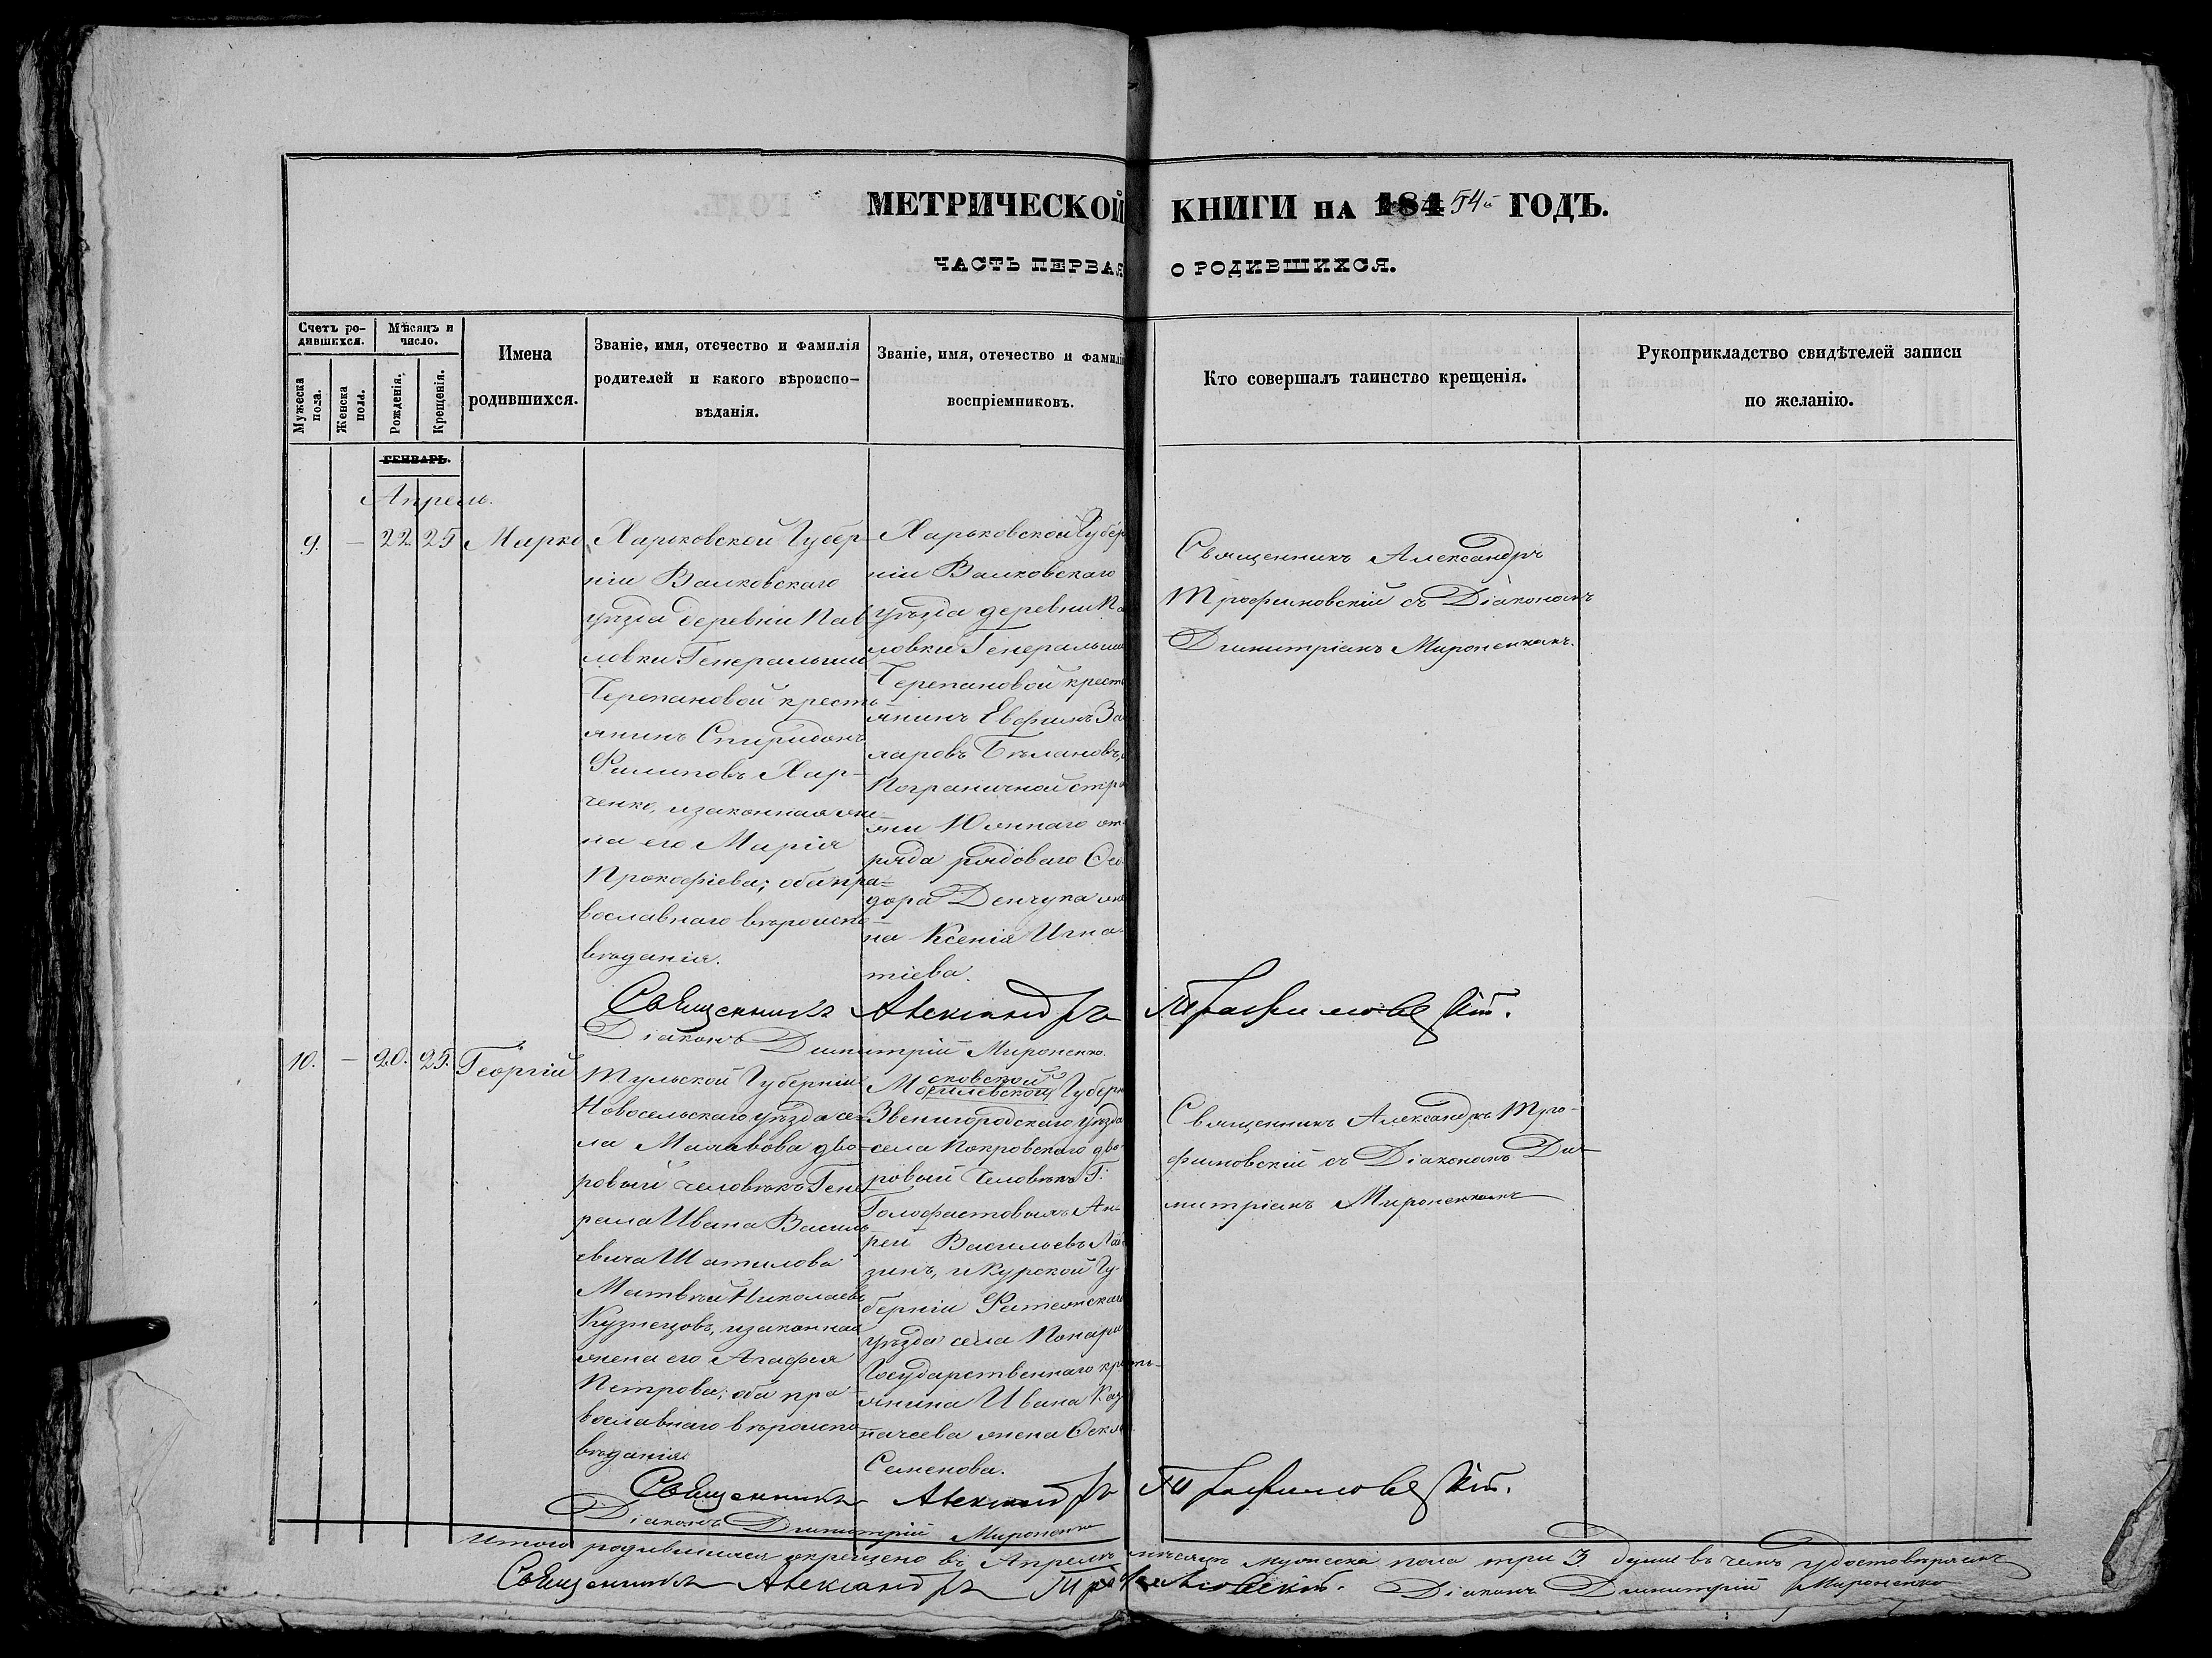 МЕТРИЧЕСКОЙ КНИГИ НА 184 54й ГОДЪ.
ЧАСТЬ ПЕРВАЯ О РОДИВШИХСЯ.
Счетъ ро-
дившихся.
Мѣсяцъ и
число.
Мужеска
пола.
Женска
пола.
Рожденія.
Крещенія.
Имена
родившихся.
Званіе, имя, отечество и фамилія
родителей и какого вѣроиспо-
вѣданія.
Званіе, имя, отечество и фамилія
воспріемниковъ.
Кто совершалъ таинство крещенія.
Рукоприкладство свидѣтелей записи
по желанію.
ГЕНВАРЬ.
Апрель.
9. — 22 25 Марко
Харковской Губер-
ніи Валковскаго
уѣзда деревни Пав
ловки Генеральши
Черепановой кресть
янинъ Спиридонъ
Филиповъ Хар-
ченко, и законная же-
на его Марія
Прокофіева; оба пра-
вославнаго вѣроиспо-
вѣданія.
Харьковской Губер
ніи Валковскаго
уѣзда деревни Па
ловки Генеральши
Черепановой кресть
янинъ Евфимъ За
харовъ Бѣлановъ,
Пограничной стра
жи Южнаго от-
ряда рядоваго Ѳео
дора Денчука же
на Ксенія Игна-
тіева.
Священникъ Александръ
Трофимовскій съ Діакономъ
Димитріемъ Мироненкомъ.
Священникъ Александръ Трофимовскій.
Діаконъ Димитрій Мироненко.
10. — 20. 25. Георгій
Тульской Губерніи
Новосельскаго уѣзда се-
ла Малавова дво-
ровый человѣкъ Гене
рала Ивана Василь
евича Шатилова
Матвѣй Николаевъ
Кузнецовъ, и законная
жена его Агафія
Петрова; оба пра-
вославнаго вѣроиспо-
вѣданія.
Московской Губерн
Звенигородскаго уѣзда
села Покровскаго дво-
ровый человѣкъ Г:
Голофастовыхъ Ан-
рей Васильевъ
зинъ, и Курской Гу-
берніи Фатежскаго
уѣзда села
Государственнаго кресть-
янина Ивана
жена Ѳекла
Семенова.
Священникъ Александръ Тро-
фимовскій съ Діакономъ Ди-
митріемъ Мироненкомъ
Священникъ Александръ Трофимовскій.
Діаконъ Димитрій Мироненко
Итого родившихся окрещено въ Апрелѣ мѣсяцѣ мужеска пола три 3 души въ чемъ удостовѣряемъ
Священникъ Александръ Трофимовскій. Діаконъ Димитрій Мироненко